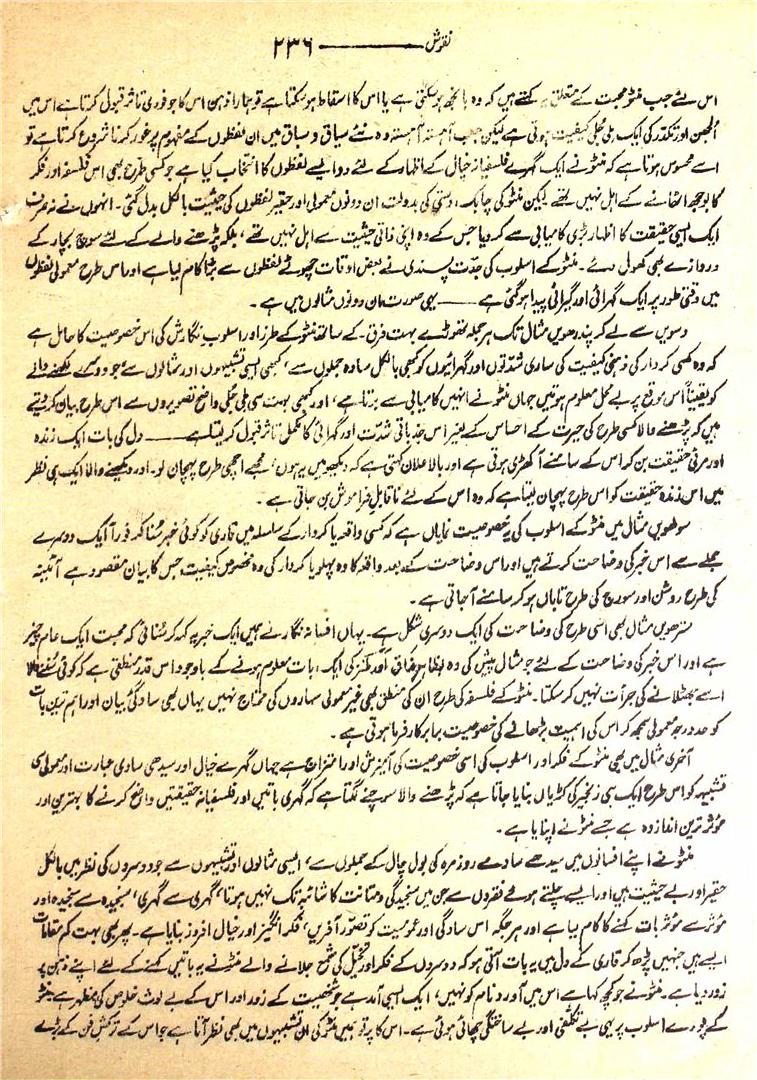 نقوش ——— ۲۳۶
اس لئے جب منٹو محبت کے متعلق یہ کہتے ہیں کہ وہ بانجھ ہو سکتی ہے یا اس کا اسقاط ہو سکتا ہے تو ہمارا ذہن اس کا جو فوری تاثر قبول کرتا ہے اس میں
الجھن اور تکدر کی ایک ملی جلی کیفیت ہوتی ہے لیکن جب آہستہ آہستہ وہ نئے سیاق و سباق میں ان لفظوں کے مفہوم پر غور کرنا شروع کرتا ہے تو
اسے محسوس ہوتا ہے کہ منٹو نے ایک گہرے فلسفیانہ خیال کے اظہار کے لئے دو ایسے لفظوں کا انتخاب کیا ہے جو کسی طرح بھی اس فلسفہ اور فکر
کا بوجھ اٹھانے کے اہل نہیں تھے لیکن منٹو کی چابک دستی کی بدولت ان دونوں معمولی اور حقیر لفظوں کی حیثیت بالکل بدل گئی۔ انہوں نے نہ صرف
ایک ایسی حقیقت کا اظہار بڑی کامیابی سے کر دیا جس کے وہ اپنی ذاتی حیثیت سے اہل نہیں تھے، بلکہ پڑھنے والے کے لئے سوچ بچار کے
دروازے بھی کھول دئے۔ منٹو کے اسلوب کی جدت پسندی نے بعض اوقات چھوٹے لفظوں سے بڑا کام لیا ہے اور اس طرح معمولی لفظوں
میں وقتی طور پر ایک گہرائی اور گیرائی پیدا ہو گئی ہے —— یہی صورت ان دونوں مثالوں میں ہے۔
دسویں سے لے کر پندرھویں مثال تک ہر جملہ تھوڑے بہت فرق کے ساتھ منٹو کے طرز اور اسلوب نگارش کی اس خصوصیت کا حامل ہے
کہ وہ کسی کردار کی ذہنی کیفیت کی ساری شدتوں اور گہرائیوں کو کبھی بالکل سادہ جملوں سے، کبھی ایسی تشبیہوں اور مثالوں سے جو دوسرے لکھنے والے
کو یقیناً اس موقع پر بے محل معلوم ہوتیں جہاں منٹو نے انہیں کامیابی سے برتا ہے، اور کبھی بہت سی ملی جلی واضح تصویروں سے اس طرح بیان کر دیتے
ہیں کہ پڑھنے والا کسی طرح کی حیرت کے احساس کے بغیر اس جذباتی شدت اور گہرائی کا مکمل تاثر قبول کر لیتا ہے —— دل کی بات ایک زندہ
اور مرئی حقیقت بن کر اس کے سامنے آ کھڑی ہوتی ہے اور بالاعلان کہتی ہے کہ دیکھو میں یہ ہوں، مجھے اچھی طرح پہچان لو۔ اور دیکھنے والا ایک ہی نظر
میں اس زندہ حقیقت کو اس طرح پہچان لیتا ہے کہ وہ اس کے لئے ناقابل فراموش بن جاتی ہے۔
سولھویں مثال میں منٹو کے اسلوب کی یہ خصوصیت نمایاں ہے کہ کسی واقعہ یا کردار کے سلسلہ میں قاری کو کوئی خبر سنا کر فوراً ایک دوسرے
جملے سے اس خبر کی وضاحت کرتے ہیں اور اس وضاحت کے بعد واقعہ کا وہ پہلو یا کردار کی وہ مخصوص کیفیت جس کا بیان مقصود ہے آئینہ
کی طرح روشن اور سورج کی طرح تاباں ہو کر سامنے آ جاتی ہے۔
سترھویں مثال بھی اسی طرح کی وضاحت کی ایک دوسری شکل ہے۔ یہاں افسانہ نگار نے ہمیں ایک خبر یہ کہہ کر سنائی کہ محبت ایک عام چیز
ہے اور اس خبر کی وضاحت کے لئے جو مثال پیش کی وہ بظاہر مذاق آمیز کی ایک بات معلوم ہونے کے باوجود اس قدر منطقی ہے کہ کوئی سننے والا
اسے جھٹلانے کی جرأت نہیں کر سکتا۔ منٹو کے فلسفہ کی طرح ان کی منطق بھی غیر معمولی سہاروں کی محتاج نہیں یہاں بھی سادگئ بیان اور اہم ترین بات
کو حد درجہ معمولی سمجھ کر اس کی اہمیت بڑھانے کی خصوصیت برابر کارفرما ہوتی ہے۔
آخری مثال میں بھی منٹو کے فکر اور اسلوب کی اسی خصوصیت کی آمیزش اور امتزاج ہے جہاں گہرے خیال اور سیدھی سادی عبارت اور معمولی سی
تشبیہہ کو اس طرح ایک سی زنجیر کی کڑیاں بنایا جاتا ہے کہ پڑھنے والا سوچنے لگتا ہے کہ گہری باتیں اور فلسفیانہ حقیقتیں واضح کرنے کا بہترین اور
مؤثر ترین انداز وہ ہے جسے منٹو نے اپنایا ہے۔
منٹو نے اپنے افسانوں میں سیدھے سادے روزمرہ کی بول چال کے جملوں سے، ایسی مثالوں اور تشبیہوں سے جو دوسروں کی نظر میں بالکل
حقیر اور بے حیثیت ہیں اور ایسے چلتے ہوئے فقروں سے جن میں سنجیدگی و متانت کا شائبہ تک نہیں ہوتا، گہری سے گہری، سنجیدہ سے سنجیدہ اور
مؤثر سے مؤثر بات کہنے کا کام لیا ہے اور ہر جگہ اس سادگی اور عمومیت کو تصور آفریں، فکر انگیز اور خیال افروز بنایا ہے۔ پھر بھی بہت کم مقامات
ایسے ہیں جنہیں پڑھ کر قاری کے دل میں یہ بات آتی ہو کہ دوسروں کے فکر اور تخیل کی شمع جلانے والے منٹو نے یہ باتیں کہنے کے لئے اپنے ذہن پر
زور دیا ہے۔ منٹو نے جو کچھ کہا ہے اس میں آورد نام کو نہیں، ایک ایسی آمد ہے جو شخصیت کے زور اور اس کے بے لوث خلوص کی مظہر ہے منٹو
کے پورے اسلوب پر یہی بے تکلفی اور بے ساختگی چھائی ہوئی ہے۔ اس کا پرتو ہمیں منٹو کی ان تشبیہوں میں بھی نظر آتا ہے جو اس کے ترکش فن کے بڑے